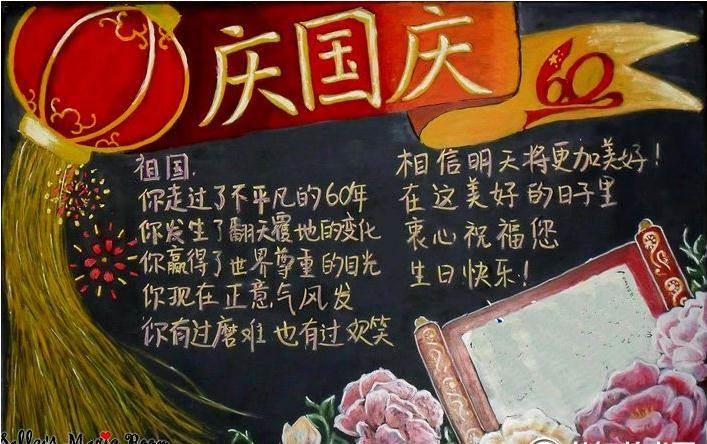 庆国庆
60
祖国,
你走过了不平凡的60年
你发生了翻天覆地的变化
你赢得了世界尊重的目光
你现在正意气风发
你有过磨难也有过欢笑
相信明天将更加美好!
在这美好的日子里
衷心祝福您
生日快乐!